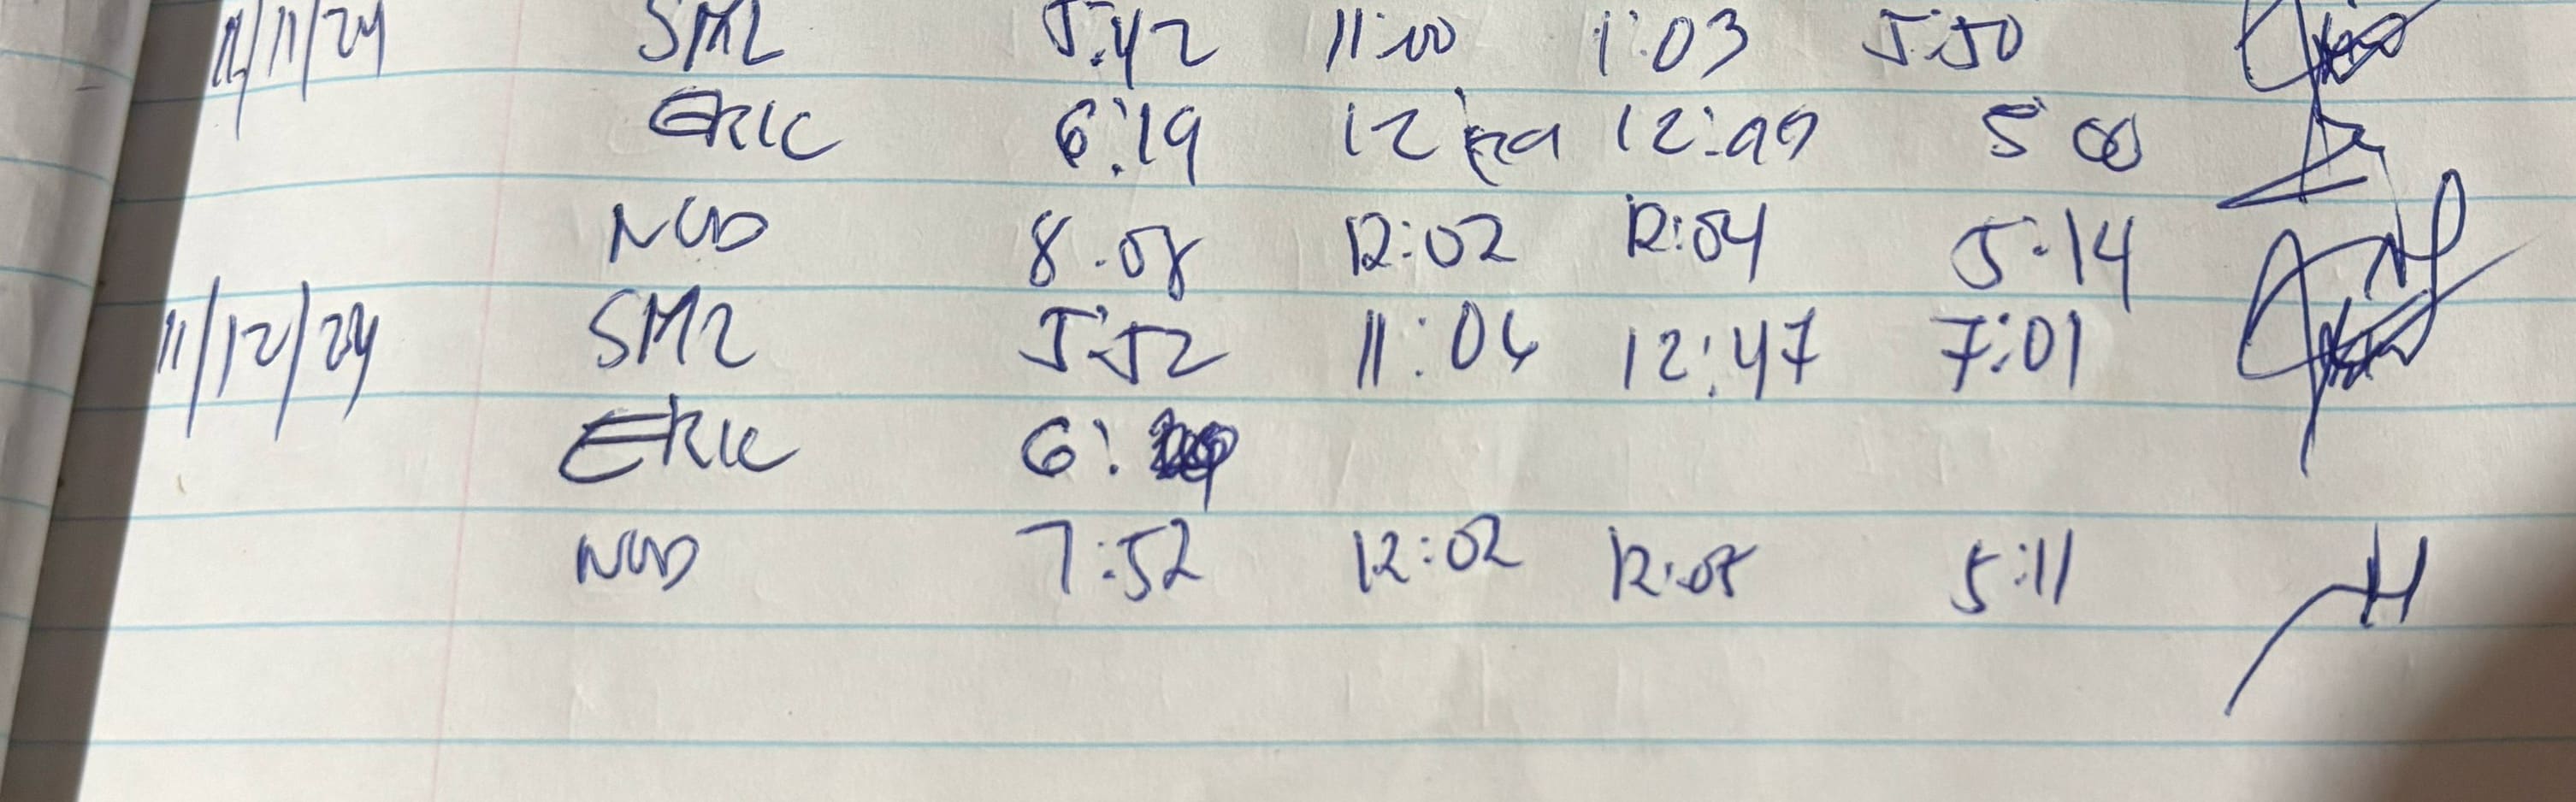 11/11/24 SM2 5:42 11:00 1:03 5:50
ERIC 6:19 12 12:09 5 00
NUD 8.08 12:02 12:04 5.14
11/12/24 SM2 5:52 11:04 12:47 7:01
ERIC 6:
NUD 7:52 12:02 12:05 5:11